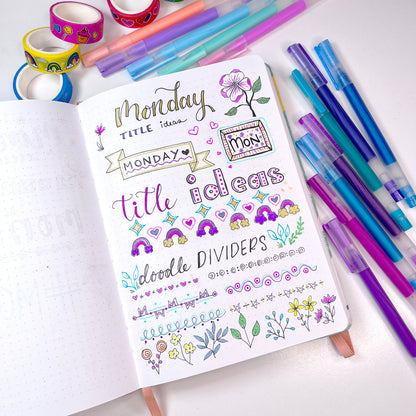 Monday
TITLE ideas
MONDAY
MON
title ideas
doodle DIVIDERS